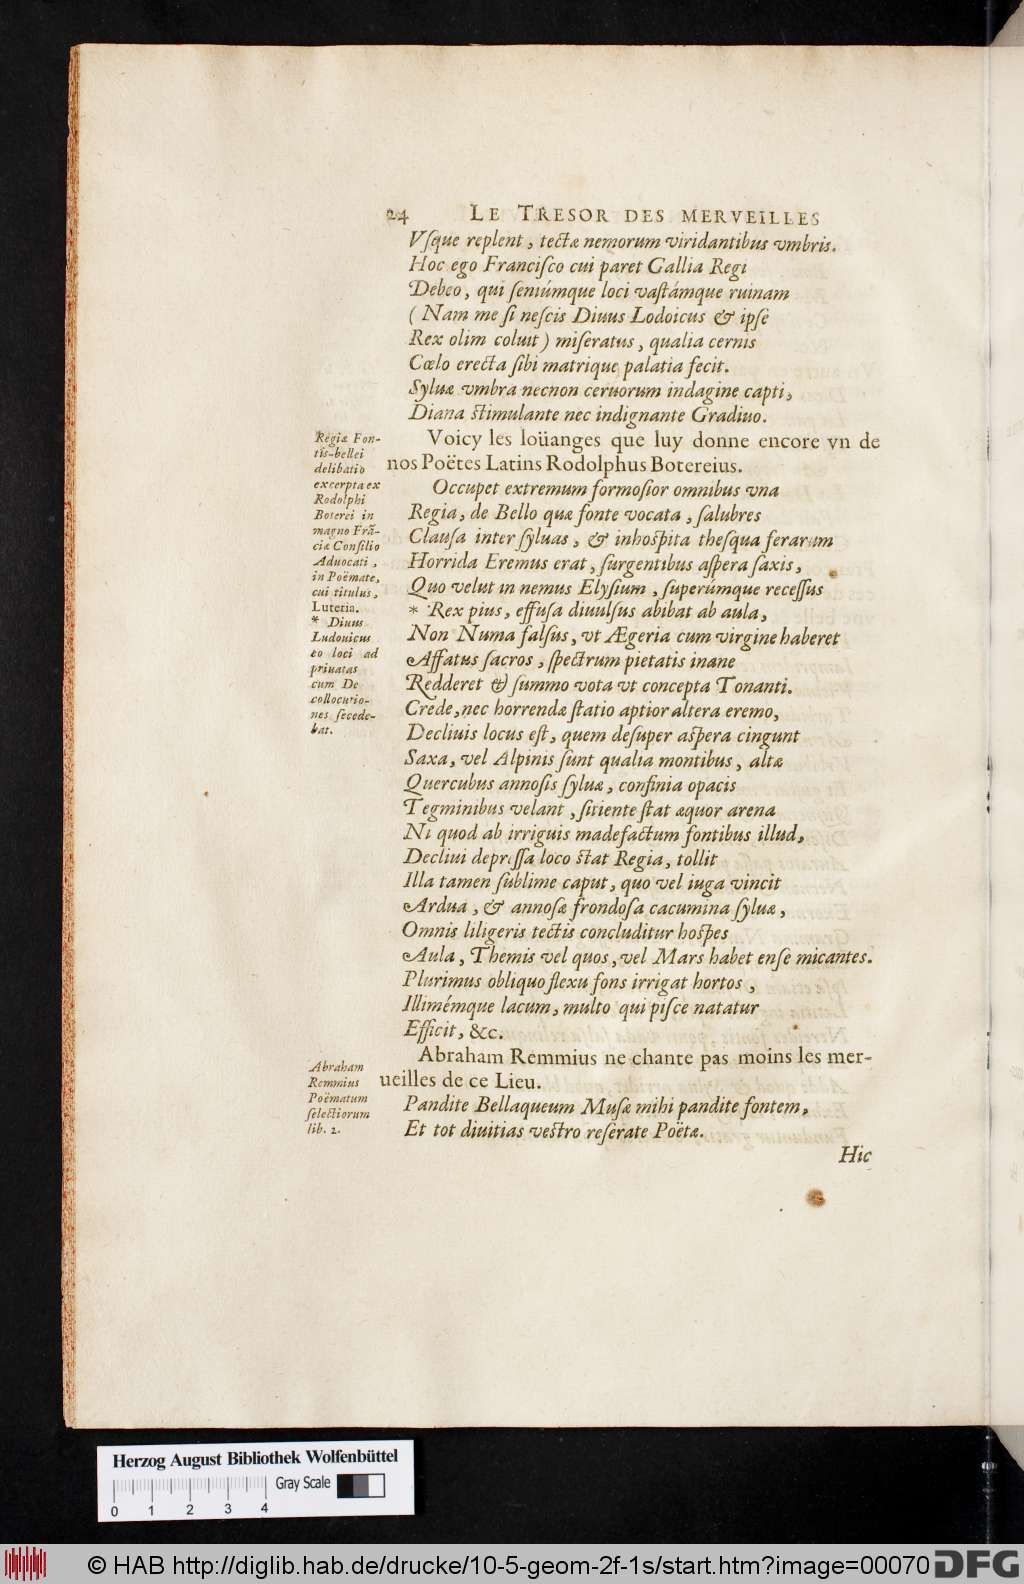 24 LE TRESOR DES MERVEILLES
Vſque replent, tectæ nemorum viridantibus vmbris.
Hoc ego Franciſco cui paret Gallia Regi
Debeo, qui ſeniúmque loci vaſtámque ruinam
(Nam me ſi neſcis Diuus Lodoicus & ipſe
Rex olim coluit) miſeratus, qualia cernis
Cœlo erecta ſibi matrique palatia fecit.
Syluæ vmbra necnon ceruorum indagine capti,
Diana ſtimulante nec indignante Gradiuo.
Voicy les loüanges que luy donne encore vn de
nos Poëtes Latins Rodolphus Botereius.
Occupet extremum formoſior omnibus vna
Regia, de Bello quæ fonte vocata, ſalubres
Clauſa inter ſyluas, & inhoſpita theſqua ferarum
Horrida Eremus erat, ſurgentibus aſpera ſaxis,
Quo velut in nemus Elyſium, ſuperúmque receſſus
* Rex pius, effuſa diuulſus abibat ab aula,
Non Numa falſus, vt Ægeria cum virgine haberet
Affatus ſacros, ſpectrum pietatis inane
Redderet & ſummo vota vt concepta Tonanti.
Crede, nec horrendæ ſtatio aptior altera eremo,
Decliuis locus eſt, quem deſuper aſpera cingunt
Saxa, vel Alpinis ſunt qualia montibus, altæ
Quercubus annoſis ſyluæ, confinia opacis
Tegminibus velant, ſitiente ſtat æquor arena
Ni quod ab irriguis madefactum fontibus illud,
Decliui depreſſa loco ſtat Regia, tollit
Illa tamen ſublime caput, quo vel iuga vincit
Ardua, & annoſæ frondoſa cacumina ſyluæ,
Omnis liligeris tectis concluditur hoſpes
Aula, Themis vel quos, vel Mars habet enſe micantes.
Plurimus obliquo flexu fons irrigat hortos,
Illimémque lacum, multo qui piſce natatur
Efficit, &c.
Abraham Remmius ne chante pas moins les mer-
ueilles de ce Lieu.
Pandite Bellaqueum Muſæ mihi pandite fontem,
Et tot diuitias veſtro reſerate Poëtæ.
Hic
Regiæ Fon-
tis-bellei
delibatio
excerpta ex
Rodolphi
Boterei in
magno Frã-
ciæ Conſilio
Aduocati,
in Poëmate,
cui titulus,
Lutetia.
* Diuus
Ludouicus
eo loci ad
priuatas
cum De
collocutio-
nes ſecede-
bat.
Abraham
Remmius
Poëmatum
ſelectiorum
lib. 2.
Herzog August Bibliothek Wolfenbüttel
Gray Scale
0 1 2 3 4
© HAB http://diglib.hab.de/drucke/10-5-geom-2f-1s/start.htm?image=00070 DFG